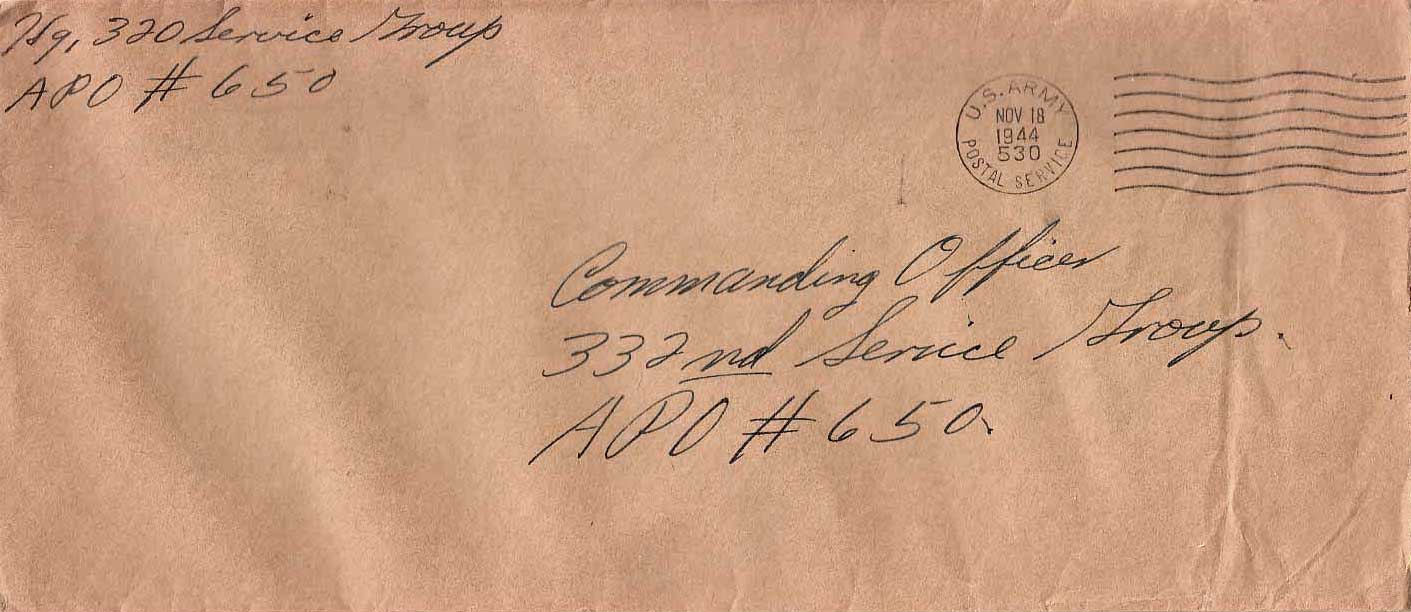 Hq, 320 Service Group
APO # 650
U.S. ARMY
NOV 18
1944
530
POSTAL SERVICE
Commanding Officer
332nd Service Group.
APO # 650.